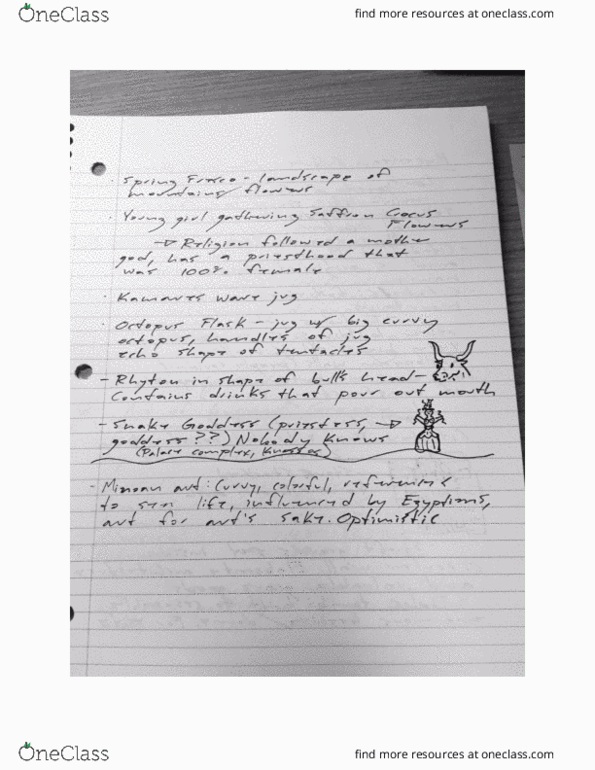 OneClass
find more resources at oneclass.com
· Spring Fresco - landscape of
mountains/flowers
· Young girl gathering Saffron Crocus
Flowers
→ Religion followed a mother
god, has a priesthood that
was 100% female
· Kamares ware jug
· Octopus Flask - jug w/ big curvy
octopus, handles of jug
echo shape of tentacles
- Rhyton in shape of bull's head -
Contains drinks that pour out mouth
- Snake Goddess (priestess, →
goddess??) Nobody Knows
(Palace complex, Knossos)
- Minoan art: Curvy, colorful, references
to sea life, influenced by Egyptians,
art for art's sake. Optimistic
OneClass
find more resources at oneclass.com